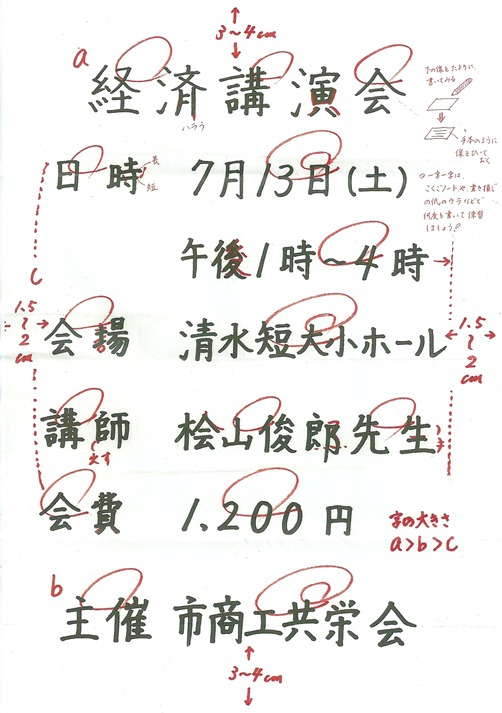 3~4cm
a
経済講演会
ハラう
下の線をたように
書いてみる
手本のように
線をひいて
おく
日時 7月13日(土)
長
短
○一字一字は、
こくごノートや、書き損じ
の仏のウラなどで
何度も書いて練習
しましょう!
午後1時~4時
c
1.5
~
2
cm
会場 清水短大小ホール
1.5
~
2
cm
講師 桧山俊郎先生
会費 1,200円
字の大きさ
a>b>c
b
主催 市商工共栄会
3~4cm